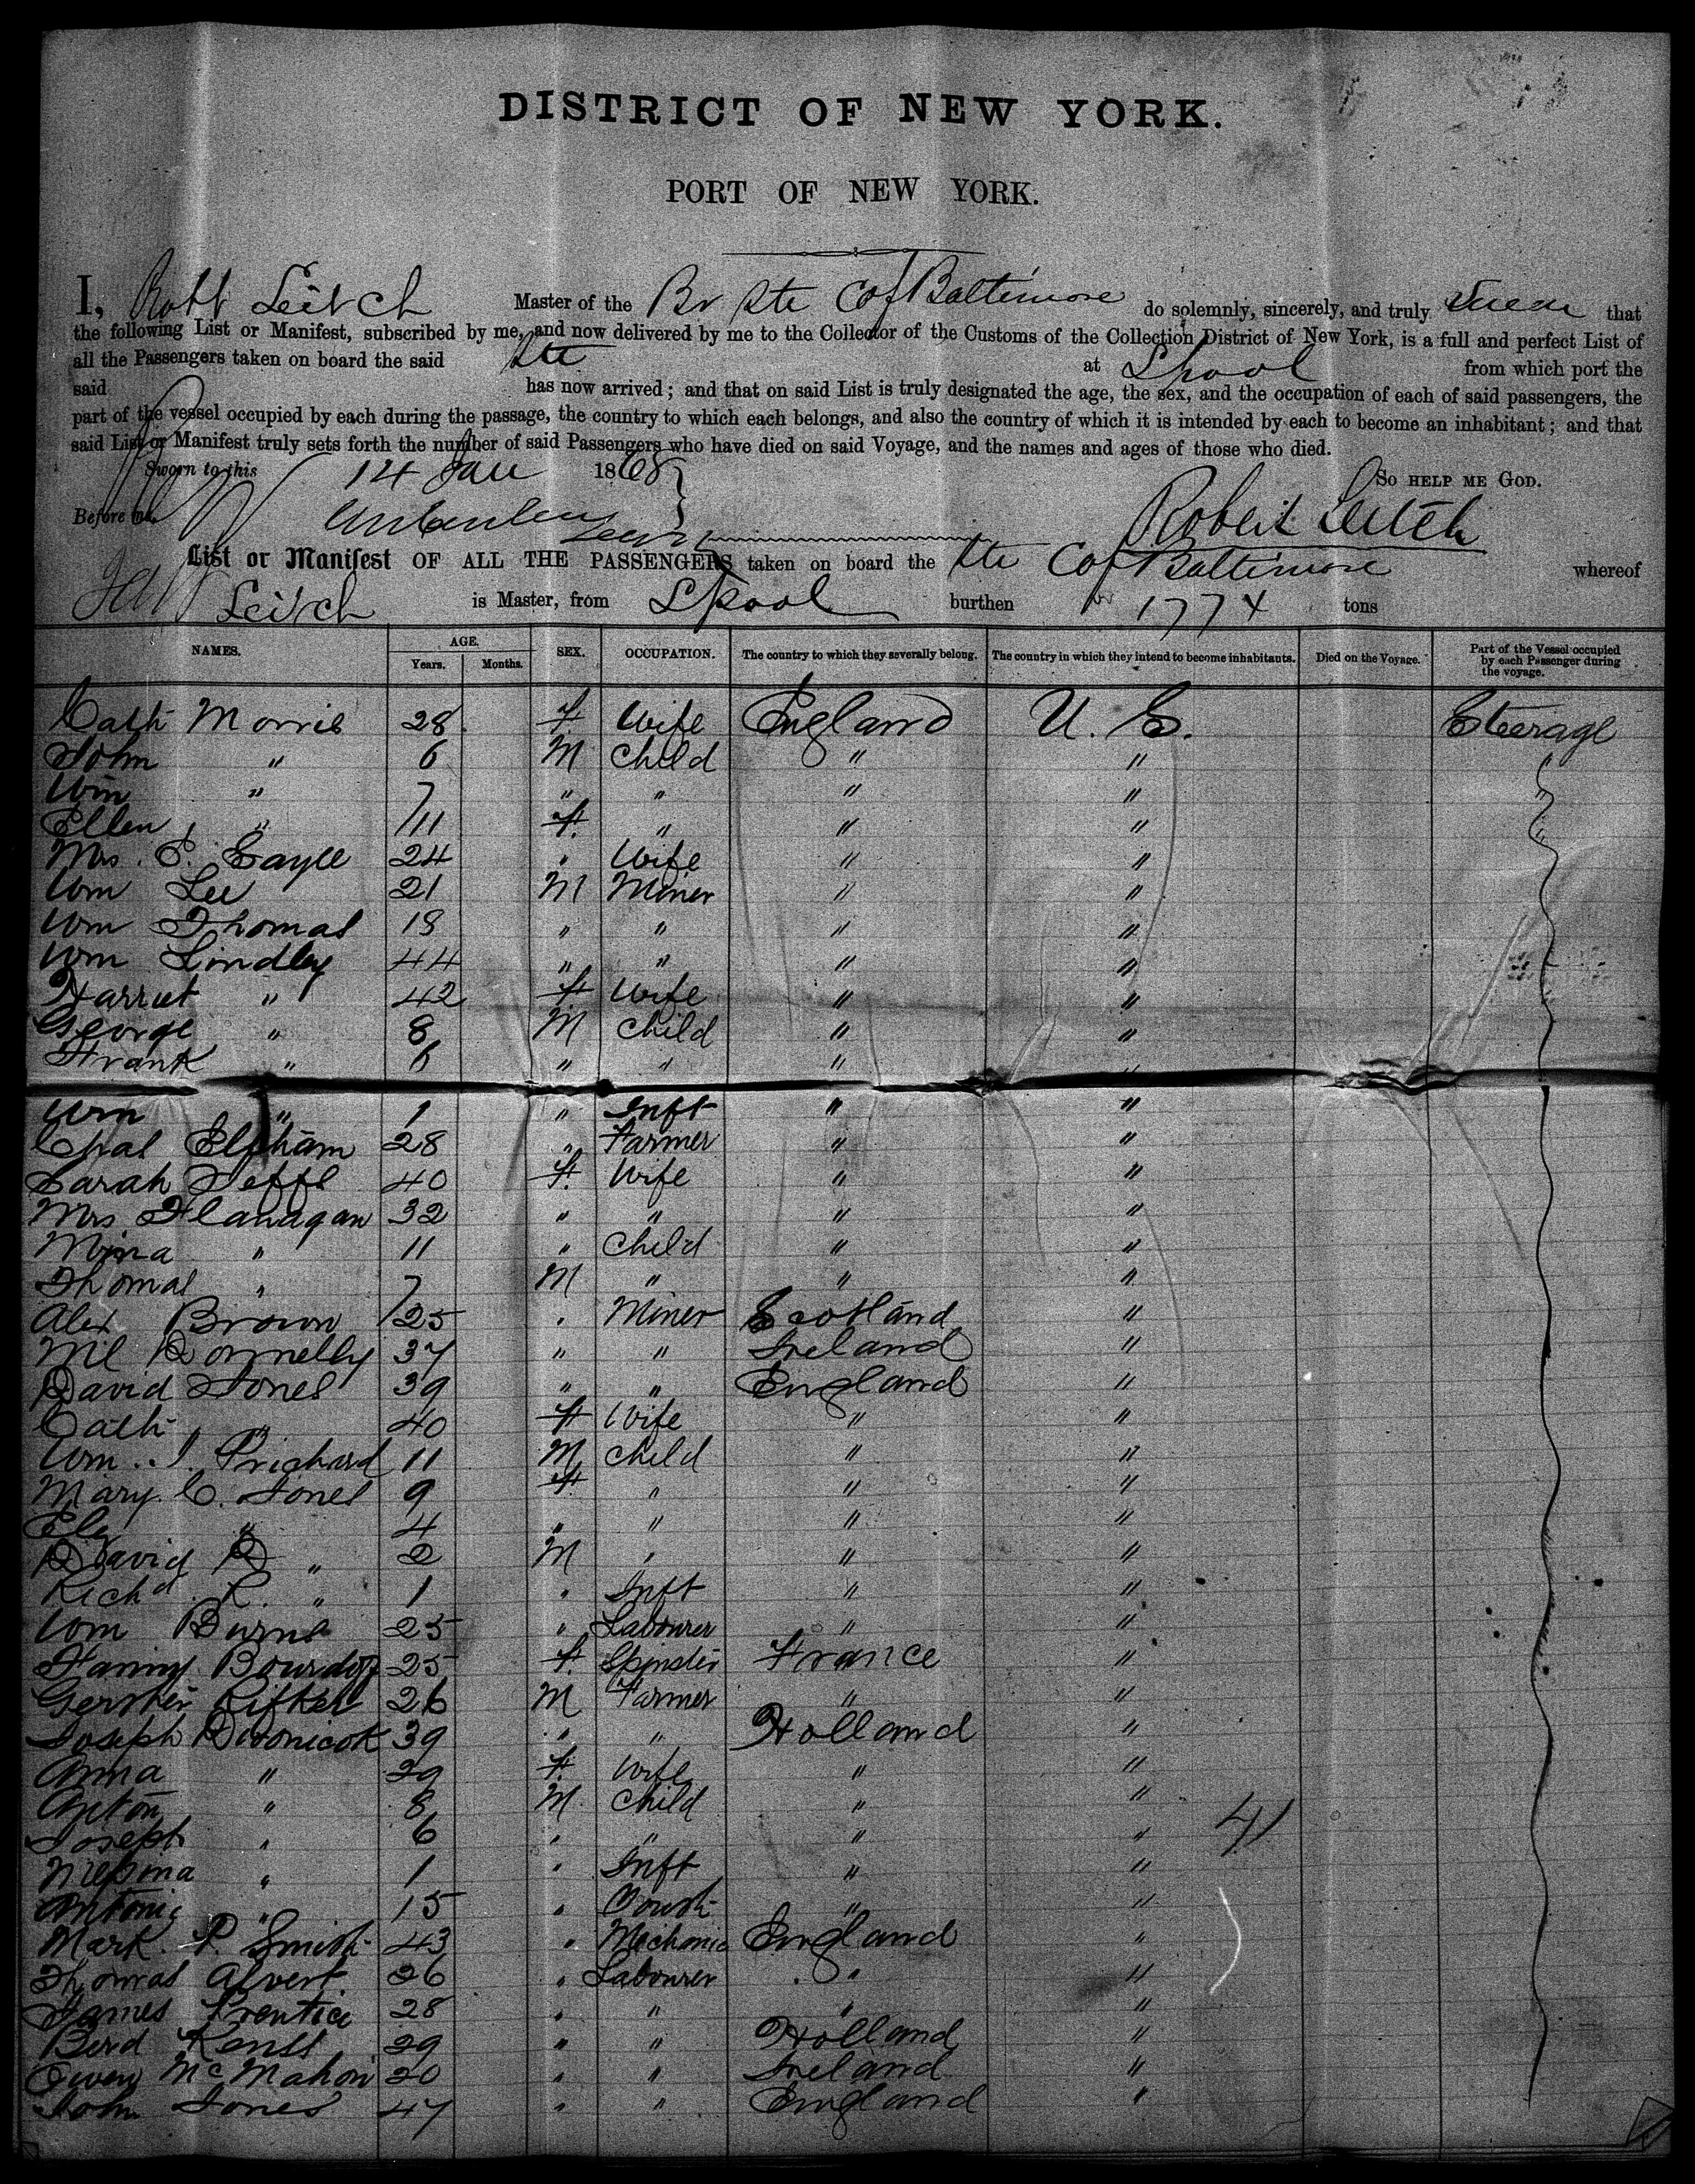 DISTRICT OF NEW YORK.
PORT OF NEW YORK.
I, Robt Leitch Master of the Br Str C of Baltimore do solemnly, sincerely, and truly Swear that
the following List or Manifest, subscribed by me, and now delivered by me to the Collector of the Customs of the Collection District of New York, is a full and perfect List of
all the Passengers taken on board the said Str at Lpool from which port the
said has now arrived; and that on said List is truly designated the age, the sex, and the occupation of each of said passengers, the
part of the vessel occupied by each during the passage, the country to which each belongs, and also the country of which it is intended by each to become an inhabitant; and that
said List or Manifest truly sets forth the number of said Passengers who have died on said Voyage, and the names and ages of those who died.
Sworn to this 14 Jan 1868 So HELP ME GOD.
Before me, Robert Leitch
List or Manifest OF ALL THE PASSENGERS taken on board the Str C of Baltimore whereof
Leitch is Master, from Lpool burthen 1774 tons
NAMES. AGE. Years. Months. SEX. OCCUPATION. The country to which they severally belong. The country in which they intend to become inhabitants. Died on the Voyage. Part of the Vessel occupied by each Passenger during the voyage.
Cath Morris 28 F. Wife England U. S. Steerage
John " 6 M Child " " "
Wm " 7 " " " " "
Ellen " /11 F. " " " "
Mrs. E. Sayce 24 " Wife " "
Wm Lee 21 M Miner " "
Wm Thomas 18 " " " "
Wm Lindley 44 " " " "
Harriet " 42 F Wife " "
George " 8 M Child " "
Frank " 6 " " " "
Wm " 1 " Inft " "
Chas Elpham 28 " Farmer " "
Sarah Jeffs 40 F. Wife " "
Mrs Flanagan 32 " " " "
Mina " 11 " Child " "
Thomas " 7 M " " "
Alex Brown 25 " Miner Scotland "
Ml Donnelly 37 " " Ireland "
David Jones 39 " " England "
Cath " 40 F Wife " "
Wm. J. Prichard 11 M Child " "
Mary C. Jones 9 F. " " "
" 4 " " " "
David D " 2 M " " "
Richd. R. " 1 " Inft " "
Wm Burns 25 " Labourer " "
Fanny 25 F. Spinster France "
26 M Farmer " "
Joseph 39 " " Holland "
Anna " 29 F. Wife " "
Anton " 8 M. Child " "
Joseph " 6 " " " " 41
" 1 " Inft " "
Antoni " 15 " " "
Mark. P. Smith 43 " Mechanic England "
Thomas Alvert 26 " Labourer " "
James Prentice 28 " " " "
29 " " Holland "
Owen McMahon 20 " " Ireland "
John Jones 47 " " England "